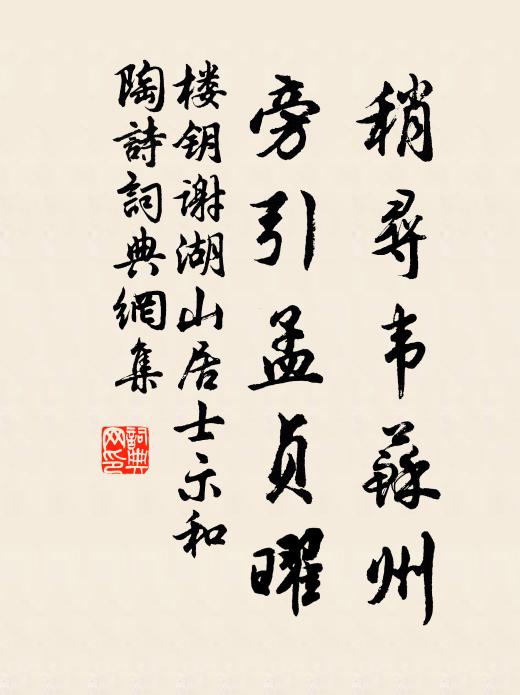 稍尋韦蘇州
旁引孟贞曜
楼钥谢湖山居士示和
陶詩詞典網集
詞典网印